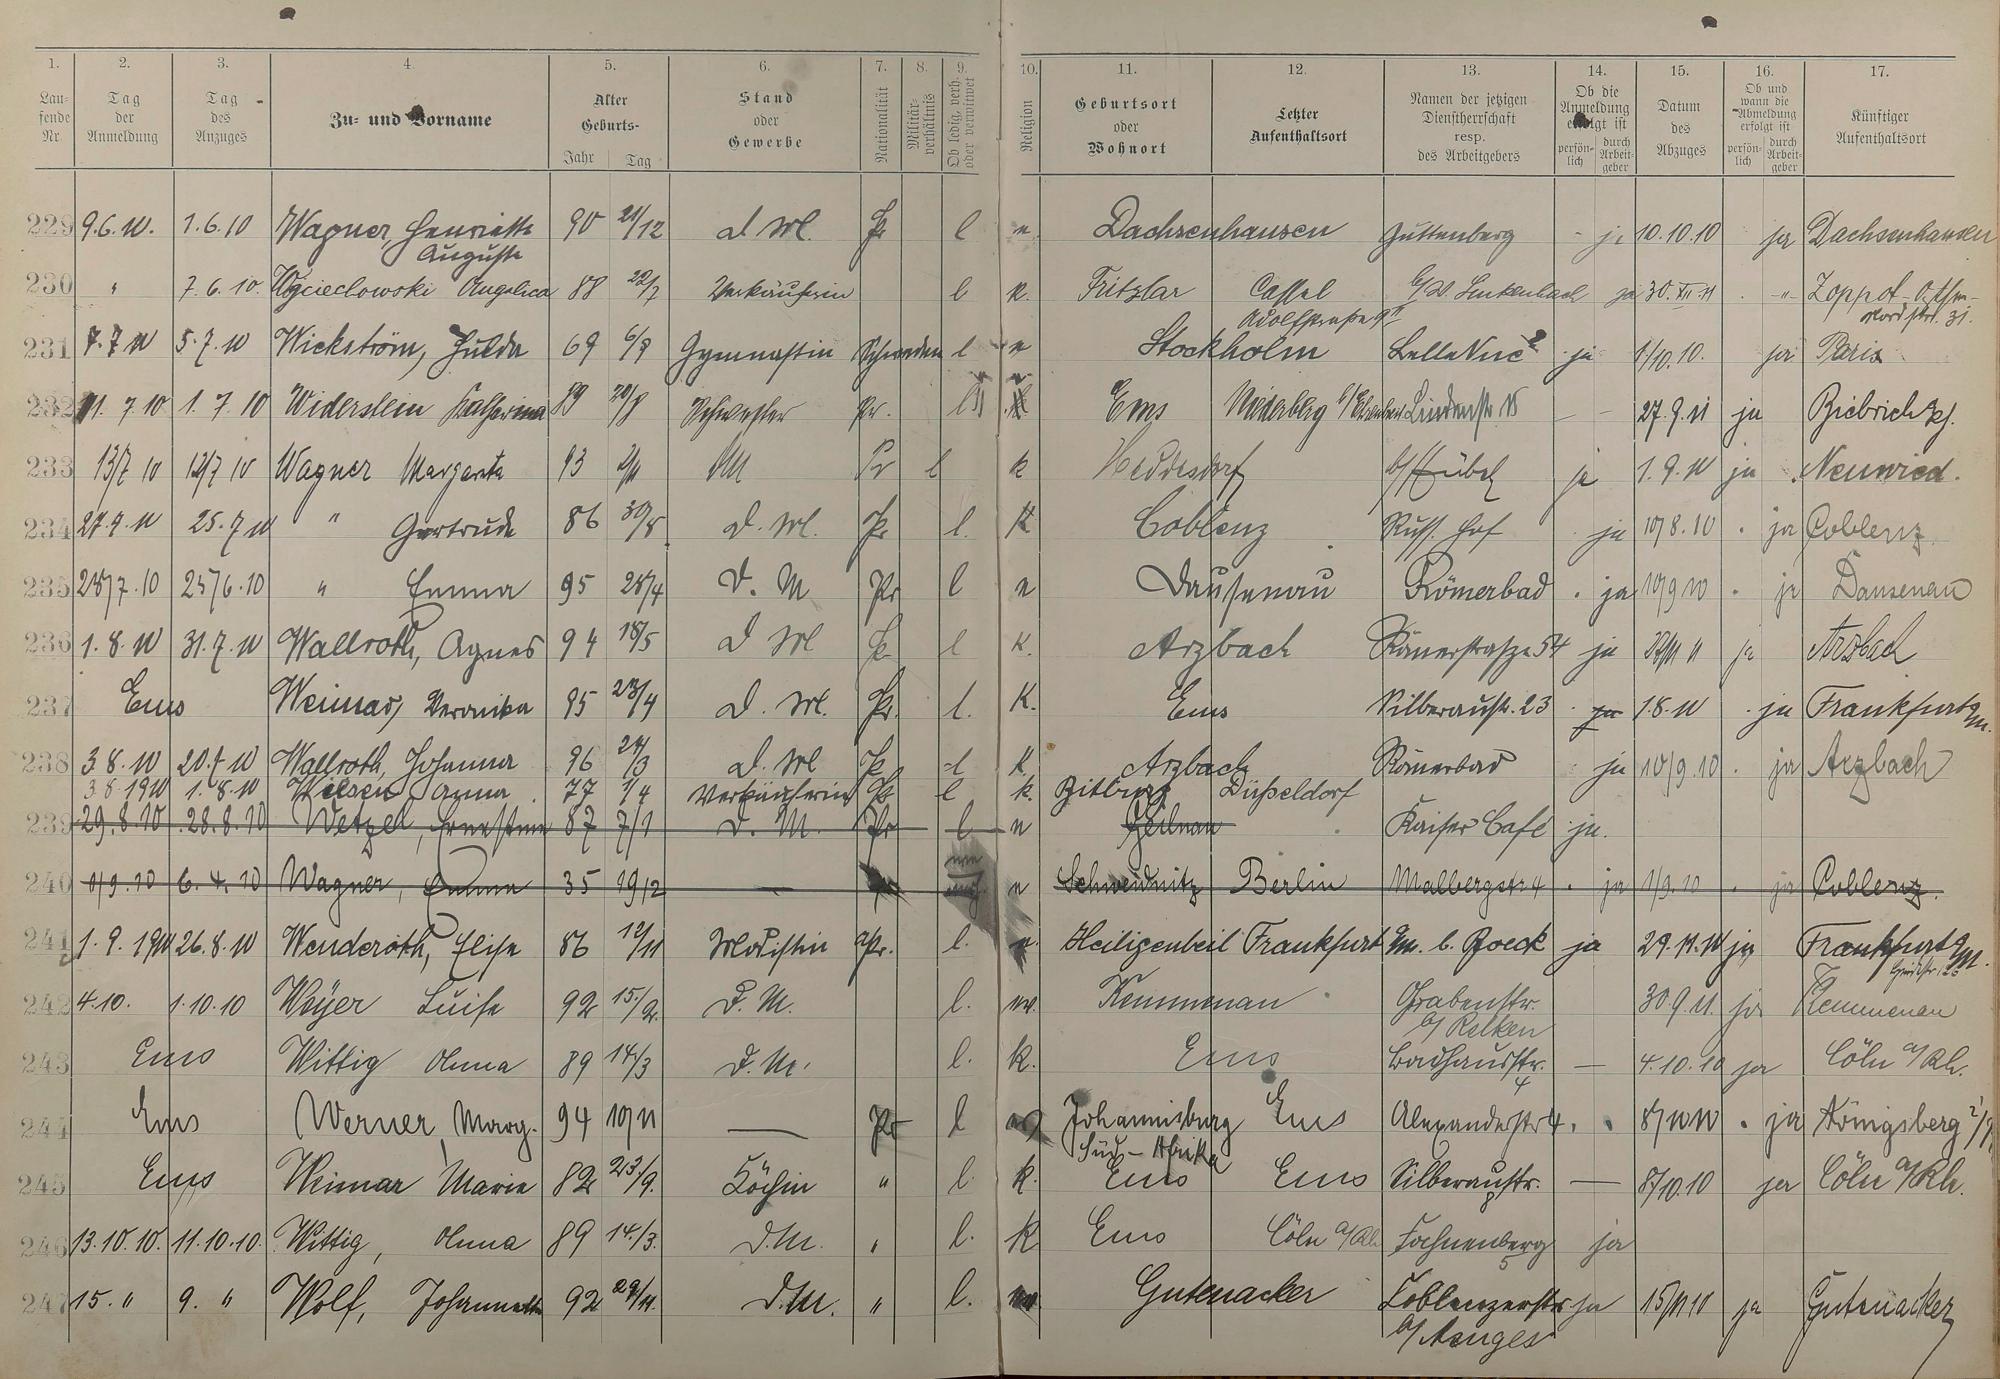 1. 2. 3. 4. 5. 6. 7. 8. 9. 10. 11. 12. 13. 14. 15. 16. 17.
Lau-fende Nr. Tag der Anmeldung Tag des Anzuges Zu- und Vorname Alter Geburts- Jahr Tag Stand oder Gewerbe Nationalität Militär-verhältnis Ob ledig, verh. oder verwitwet Religion Geburtsort oder Wohnort Letzter Aufenthaltsort Namen der jetzigen Dienstherrschaft resp. des Arbeitgebers Ob die Anmeldung erfolgt ist persön-lich durch Arbeit-geber Datum des Abzuges Ob und wann die Abmeldung erfolgt ist persön-lich durch Arbeit-geber Künftiger Aufenthaltsort
229 9.6.10. 1.6.10 Wagner, Henriette Auguste 90 21/12 d. M. Pr l Dachsenhausen Guttenberg ja 10.10.10 ja Dachsenhausen
230 " 7.6.10. Angelica 88 22/7 Verkäuferin l k. Fritzlar Cassel Adolfstraße 9 ja 30.XII.11 -"- Zoppot Nordstr. 31.
231 7.7.10 5.7.10 Wickström, Hulda 69 6/9 Gymnastin Schweden l Stockholm Belle Vue ja 1/10.10. ja Paris
232 11.7.10 1.7.10 Widerstein Katharina 89 20/8 Schwester Pr. l Ems Niederberg Lindenstr. 27.9.11 ja Biebrich
233 13/7 10 12/7 10 Wagner Margareta 93 DM Pr l k Heddesdorf b/ Hübel ja 1.9.10 ja Neuwied.
234 25.7.10 " Gertrude 86 30/8 D. M. Pr l. K Coblenz Russ. Hof ja 10/8.10 ja Coblenz.
235 25/7.10 25/6.10 " Emma 95 28/4 D. M Pr l Dausenau Römerbad ja 10/9 10 ja Dausenau
236 1.8.10 31.7.10 Wallroth, Agnes 94 18/5 D M Pr l K. Arzbach Römerstrasze 54 ja ja Arzbach
237 Ems Weimar, Veronika 95 23/4 D. M. Pr. l. K. Ems Silberaustr. 23 ja 1.8.10 ja Frankfurt a/M.
238 3.8.10 20.7.10 Wallroth, Johanna 96 24/3 D. M Pr l K Arzbach Römerbad ja 10/9.10 ja Arzbach
3.8.1910 1.8.10 Anna 77 1/4 Verkäuferin Pr l k. Bitburg Düsseldorf
239 29.8.10 28.8.10 Wetzel, Ernestine 87 7/1 D. M. Pr l Geilnau Kaiser Café ja.
240 1/9.10 6.4.10 Wagner, Emma 35 19/2 — Schweidnitz Berlin Malbergstr 4 ja 1/9.10 ja Coblenz.
241 1.9.1910 26.8.10 Wenderoth, Elise 86 12/11 Modistin Pr. l. Heiligenbeil Frankfurt a/M. b. Boeck ja 29.11.10 ja Frankfurt a/M.
242 4.10. 1.10.10 Weyer Luise 92 15./2. D. M. l. Kemmenau Grabenstr. b/ Relken 30.9.11. ja Kemmenau
243 Ems Wittig Anna 89 14/3 D. M. l. k. Ems Badhausstr. 4 — 4.10.10 ja Cöln a/Rh.
244 Ems Werner, Marg. 94 10/11 — Pr l Johannisburg Süd-Afrika Ems Alexanderstr 4. 8/10 10 ja Königsberg
245 Ems Weimar Marie 82 23/9. Köchin " l. k. Ems Ems Silberaustr. — 8/10.10 ja Cöln a/Rh.
246 13.10.10. 11.10.10. Wittig, Anna 89 14./3. D.M. " l. k Ems Cöln a/Rh. 5 ja
247 15. " 9. " Wolf, Johannette 92 29/11. D.M. " l. Gutenacker Coblenzerstr b/ Menges ja ja Gutenacker